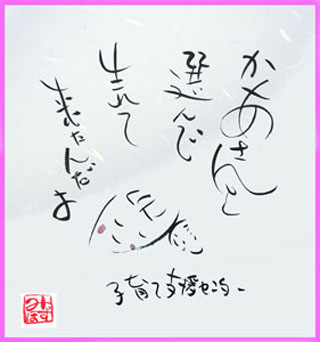 かあさんを
選んで
生れて
来たんだよ
子育て支援センター